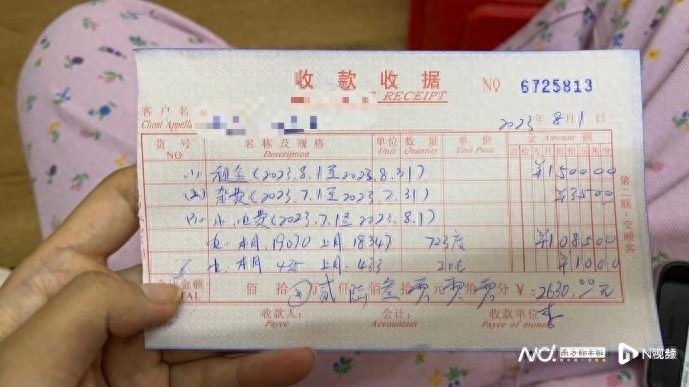 收款收据 NO 6725813
RECEIPT
客户名 2023年8月1日
Client Appella
货号 名称及规格 单位 数量 单价 金 Amount 额
NO Description Unit Quantity Unit Price 佰拾万仟佰拾元角分
(1) 租金(2023.8.1至2023.8.31) ¥150000
(2) 杂费(2023.7.1至2023.7.31) ¥3500
(3) 水.电费(2023.7.1至2023.8.1)
电:本月 19070 上月 18347 723度 ¥108500
水:本月 435 上月:433 2吨 ¥1000
金额 佰 拾 万贰仟陆佰叁拾零元零角零分 ¥:2630.00元
TOTAL
收款人: 会计: 收款单位
Payee Accountant Payee of
第二联:交顾客
N 南方都市报 N视频